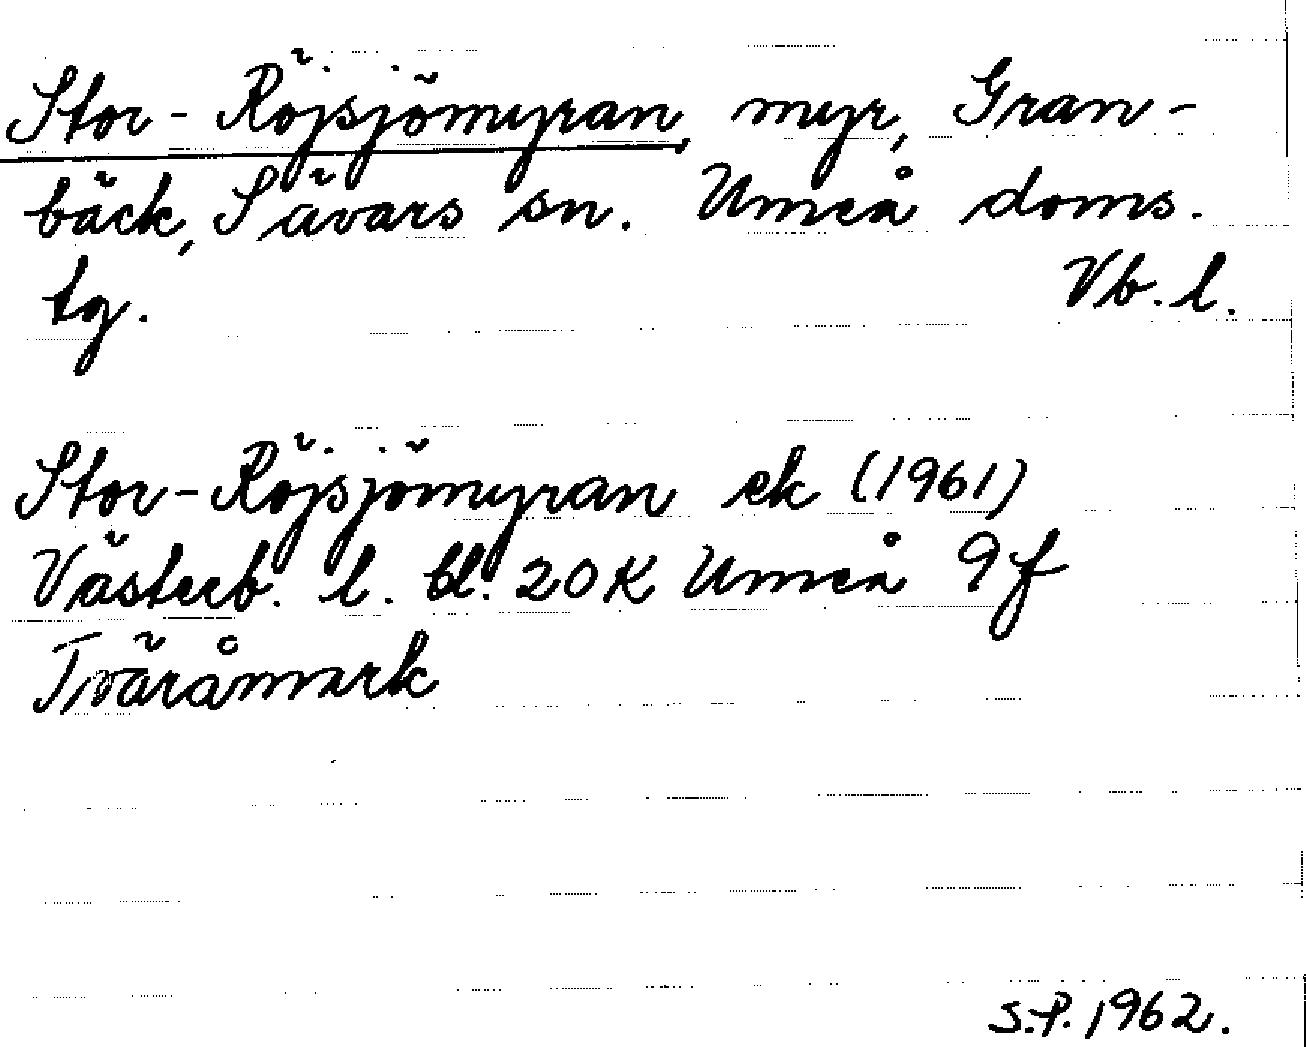 Stor-Röjsjömyran, myr, Gran-
bäck, Sävars sn. Umeå doms.
tg. Vb. l.
Stor-Röjsjömyran ek (1961)
Västerb. l. bl. 20K Umeå 9f
Tväråmark
S.P. 1962.